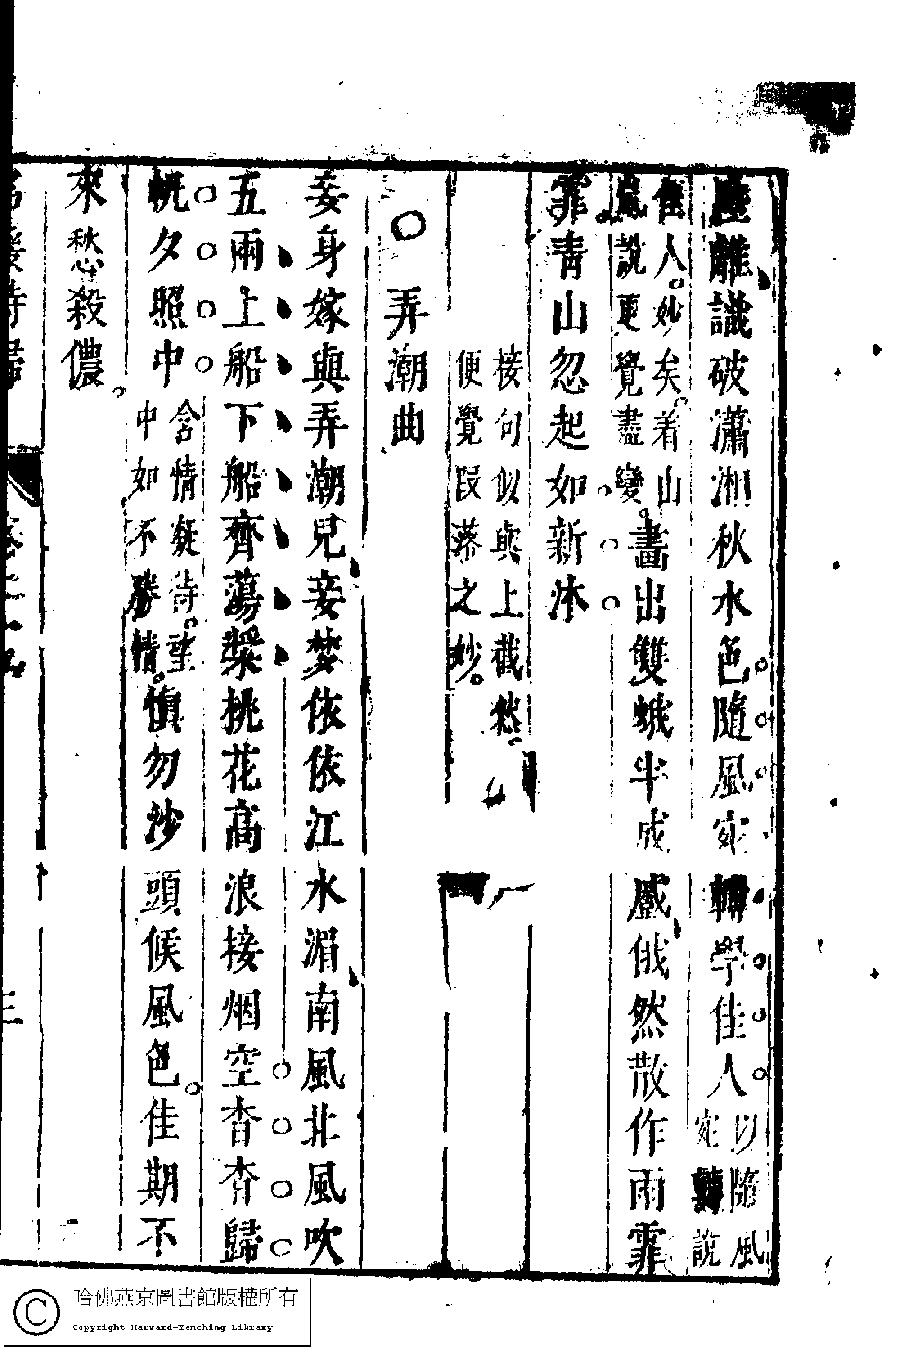 陸離識破瀟湘秋水色隨風宛轉學佳人以隨風宛轉說
佳人妙矣着山鳥說更覺盡變畵出雙蛾半成蹙俄然散作雨霏
霏青山忽起如新沐
接句似與上截然便覺段落之妙
弄潮曲
妾身嫁與弄潮兒妾夢依依江水湄南風北風吹
五兩上船下船齊蕩槳桃花高浪接烟空杳杳歸
帆夕照中含情凝待望中如不勝情愼勿沙頭候風色佳期不
來愁殺儂
三
哈佛燕京圖書館版權所有
Copyright Harvard-Yenching Library